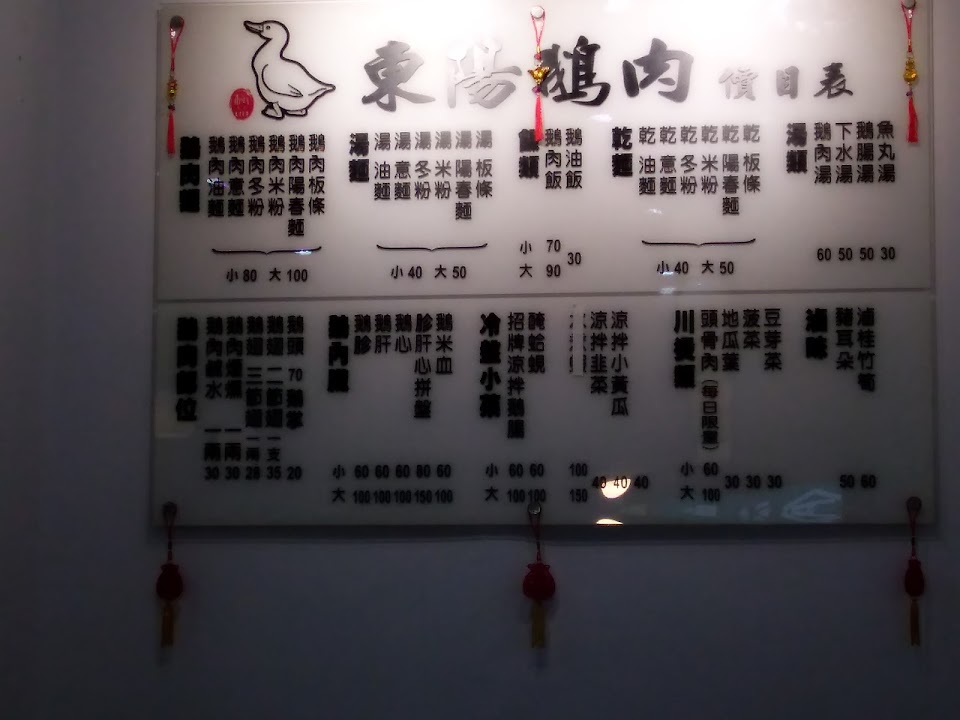 東陽鵝肉 價目表
鵝肉麵
鵝肉油麵
鵝肉意麵
鵝肉冬粉
鵝肉米粉
鵝肉陽春麵
鵝肉板條
小80 大100
湯麵
湯油麵
湯意麵
湯冬粉
湯米粉
湯陽春麵
湯板條
小40 大50
飯類
鵝肉飯 小70 大90
鵝油飯 30
乾麵
乾油麵
乾意麵
乾冬粉
乾米粉
乾陽春麵
乾板條
小40 大50
湯類
鵝肉湯 60
下水湯 50
鵝腸湯 50
魚丸湯 30
鵝肉部位
鵝肉鹹水 一兩30
鵝肉煙燻 一兩30
鵝翅 三節翅 一兩28
鵝翅 二節翅 一支35
鵝頭 70 鵝掌 20
鵝內臟
鵝胗 小60 大100
鵝肝 60 100
鵝心 60 100
胗肝心拼盤 80 150
鵝米血 60 100
冷盤小菜
招牌涼拌鵝腸 小60 大100
醃蛤蜆 60 100
100 150
涼拌韭菜 40
涼拌小黃瓜 40
40
川燙類
頭骨肉(每日限量) 小60 大100
地瓜葉 30
菠菜 30
豆芽菜 30
滷味
豬耳朵 50
滷桂竹筍 60